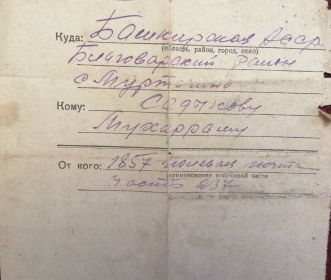 Куда: Башкирская Асср.
(область, район, город, село)
Благоварский район
с Мурткино
Кому: Садыкову
Мухарраму
От кого: 1857 полевая почта
(наименование войсковой части
Часть 237